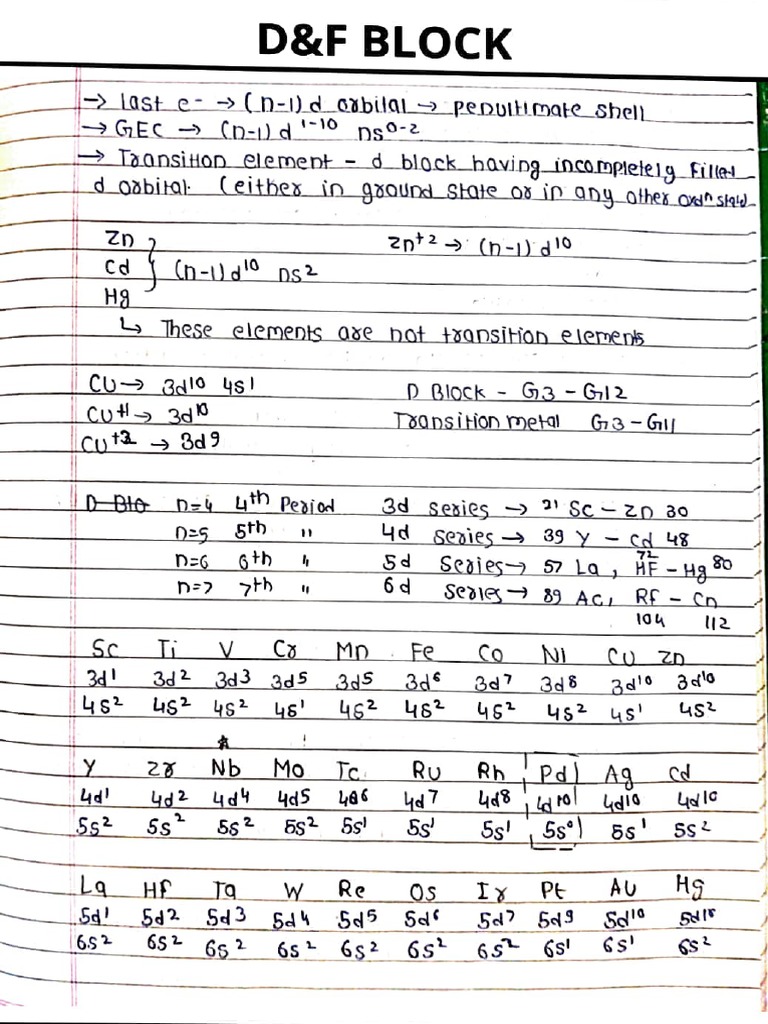 D&F BLOCK
→ last e- → (n-1)d orbital → penultimate shell
→ GEC → (n-1)d¹⁻¹⁰ ns⁰⁻²
→ Transition element - d block having incompletely filled
d orbital. (either in ground state or in any other oxdⁿ state)
Zn
Cd } (n-1)d¹⁰ ns²
Hg
Zn⁺² → (n-1)d¹⁰
↳ These elements are not transition elements
CU → 3d¹⁰ 4s¹
CU⁺¹ → 3d¹⁰
CU⁺² → 3d⁹
D Block - G3 - G12
Transition metal G3 - G11
D Blo n=4 4th Period 3d series → 21 Sc - Zn 30
n=5 5th " 4d series → 39 Y - Cd 48
n=6 6th " 5d series → 57 La, 72 HF - Hg 80
n=7 7th " 6d series → 89 Ac, Rf - Cn
104 112
Sc Ti V Cr Mn Fe Co Ni CU Zn
3d¹ 3d² 3d³ 3d⁵ 3d⁵ 3d⁶ 3d⁷ 3d⁸ 3d¹⁰ 3d¹⁰
4s² 4s² 4s² 4s¹ 4s² 4s² 4s² 4s² 4s¹ 4s²
★
Y Zr Nb Mo Tc Ru Rh Pd Ag Cd
4d¹ 4d² 4d⁴ 4d⁵ 4d⁶ 4d⁷ 4d⁸ 4d¹⁰ 4d¹⁰ 4d¹⁰
5s² 5s² 5s² 5s² 5s¹ 5s¹ 5s¹ 5s⁰ 5s¹ 5s²
La Hf Ta W Re Os Ir Pt AU Hg
5d¹ 5d² 5d³ 5d⁴ 5d⁵ 5d⁶ 5d⁷ 5d⁹ 5d¹⁰ 5d¹⁰
6s² 6s² 6s² 6s² 6s² 6s² 6s² 6s¹ 6s¹ 6s²